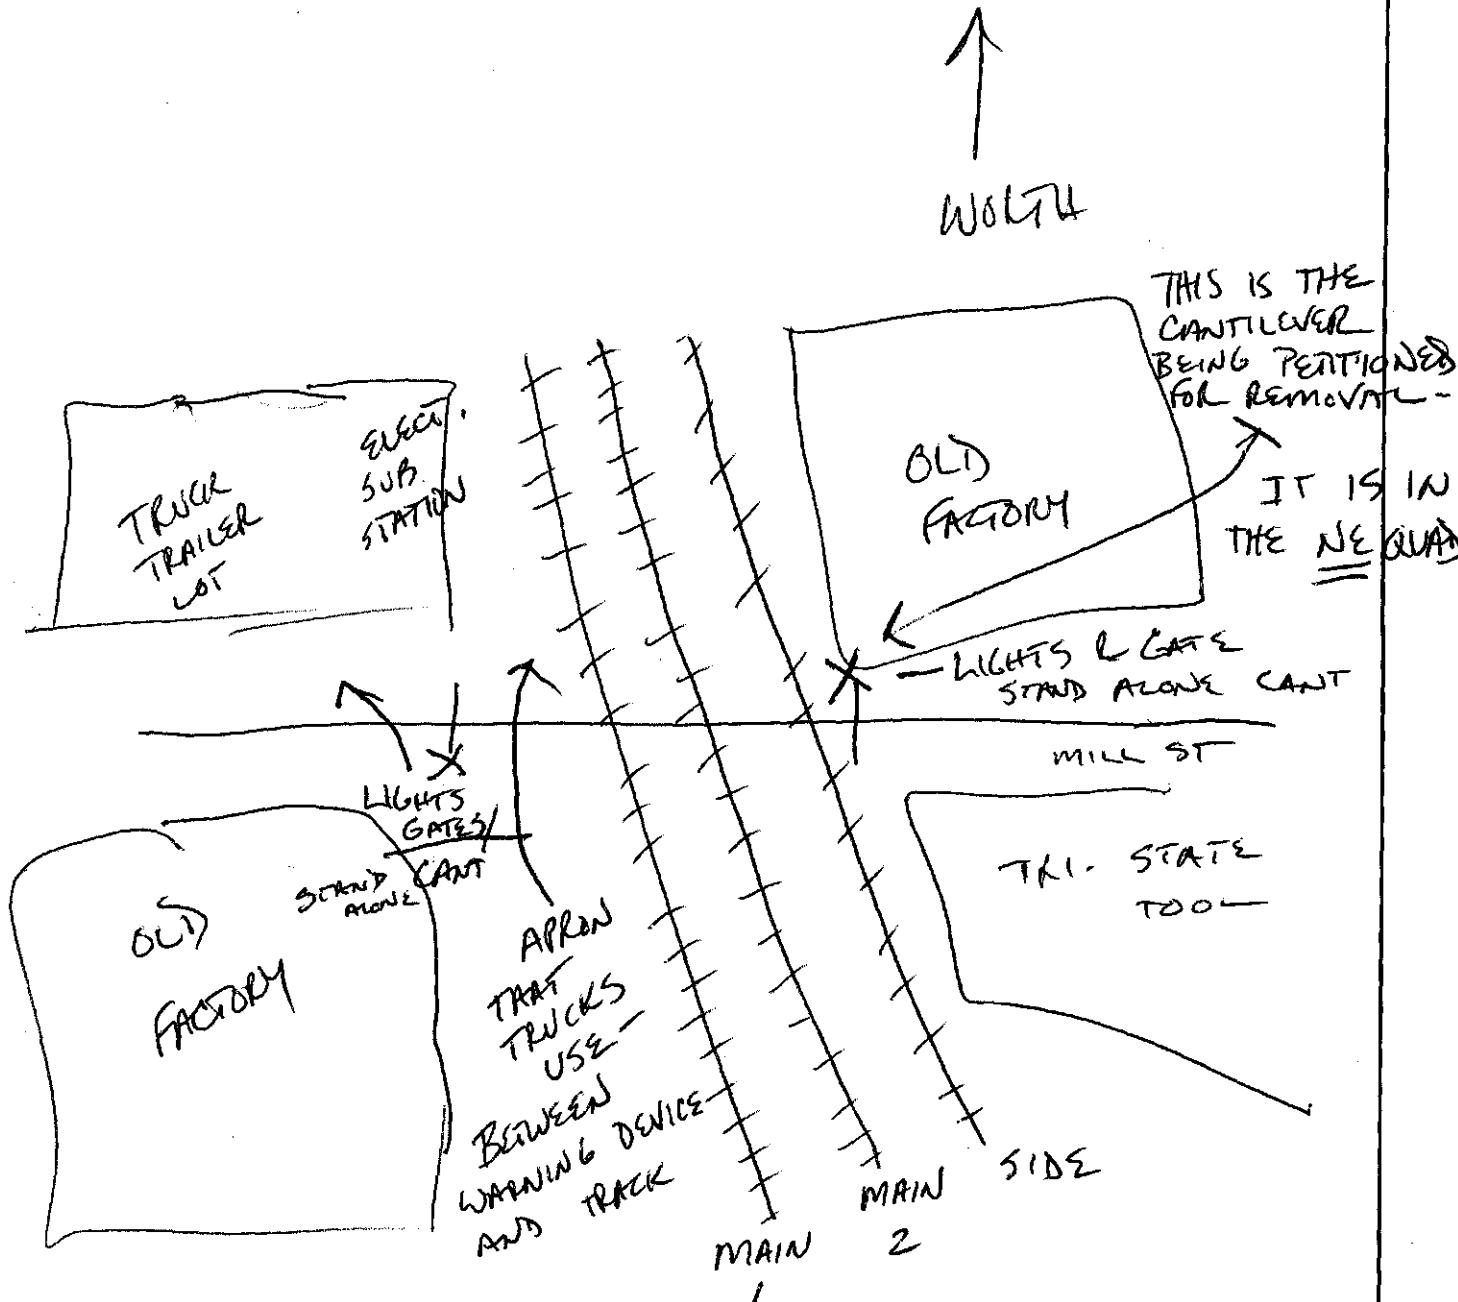 NORTH
THIS IS THE
CANTILEVER
BEING PETITIONED
FOR REMOVAL -
IT IS IN
THE NE QUAD
ELECT.
SUB.
STATION
TRUCK
TRAILER
LOT
OLD
FACTORY
- LIGHTS & GATE
STAND ALONE CANT
MILL ST
LIGHTS
GATES/
CANT
STAND
ALONE
TRI-STATE
TOOL
OLD
FACTORY
APRON
THAT
TRUCKS
USE -
BETWEEN
WARNING DEVICE
AND TRACK
SIDE
MAIN
2
MAIN
1